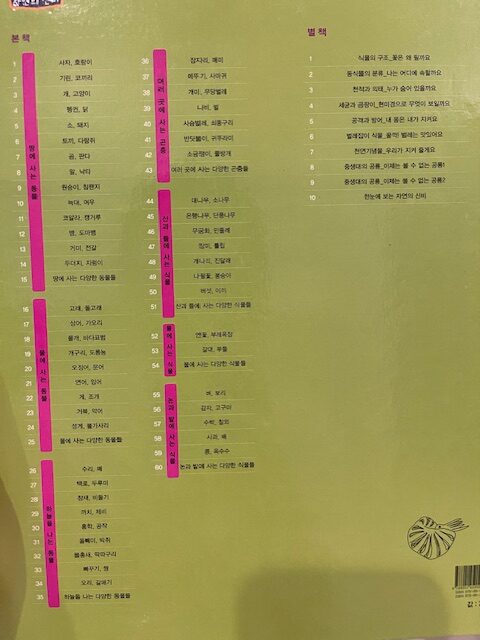 본 책
땅에 사는 동물
1 사자, 호랑이
2 기린, 코끼리
3 개, 고양이
4 펭귄, 닭
5 소, 돼지
6 토끼, 다람쥐
7 곰, 판다
8 말, 낙타
9 원숭이, 침팬지
10 늑대, 여우
11 코알라, 캥거루
12 뱀, 도마뱀
13 거미, 전갈
14 두더지, 지렁이
15 땅에 사는 다양한 동물들
물에 사는 동물
16 고래, 돌고래
17 상어, 가오리
18 물개, 바다표범
19 개구리, 도롱뇽
20 오징어, 문어
21 연어, 잉어
22 게, 조개
23 거북, 악어
24 성게, 불가사리
25 물에 사는 다양한 동물들
하늘을 나는 동물
26 수리, 매
27 백로, 두루미
28 참새, 비둘기
29 까치, 제비
30 홍학, 공작
31 올빼미, 박쥐
32 물총새, 딱따구리
33 뻐꾸기, 꿩
34 오리, 갈매기
35 하늘을 나는 다양한 동물들
여러 곳에 사는 곤충
36 잠자리, 매미
37 메뚜기, 사마귀
38 개미, 무당벌레
39 나비, 벌
40 사슴벌레, 쇠똥구리
41 반딧불이, 귀뚜라미
42 소금쟁이, 물방개
43 여러 곳에 사는 다양한 곤충들
산과 들에 사는 식물
44 대나무, 소나무
45 은행나무, 단풍나무
46 무궁화, 민들레
47 장미, 튤립
48 개나리, 진달래
49 나팔꽃, 봉숭아
50 버섯, 이끼
51 산과 들에 사는 다양한 식물들
물에 사는 식물
52 연꽃, 부레옥잠
53 갈대, 부들
54 물에 사는 다양한 식물들
논과 밭에 사는 식물
55 벼, 보리
56 감자, 고구마
57 수박, 참외
58 사과, 배
59 콩, 옥수수
60 논과 밭에 사는 다양한 식물들
별 책
1 식물의 구조_꽃은 왜 필까요
2 동식물의 분류_나는 어디에 속할까요
3 천적과 의태_누가 숨어 있을까요
4 세균과 곰팡이_현미경으로 무엇이 보일까요
5 공격과 방어_내 몸은 내가 지켜요
6 벌레잡이 식물_꿀꺽! 벌레는 맛있어요
7 천연기념물_우리가 지켜 줄게요
8 중생대의 공룡_이제는 볼 수 없는 공룡1
9 중생대의 공룡_이제는 볼 수 없는 공룡2
10 한눈에 보는 자연의 신비
값 :